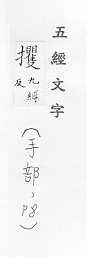 五經文字
攫九縛反(手部,98)